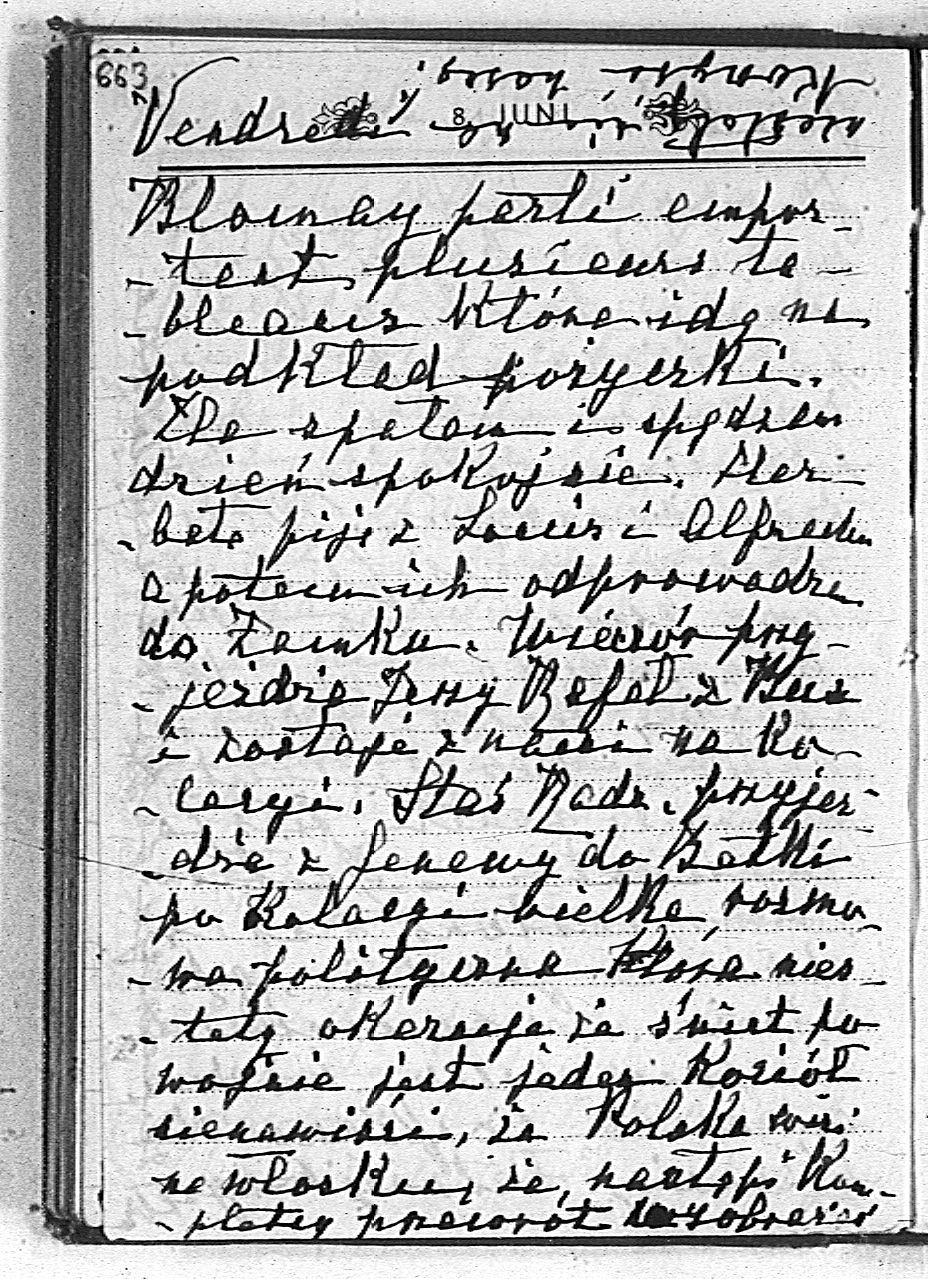 663
Vendredi 8 JUNI
Blounay parti empor-
-tent plusieurs ta-
-bleaux które idą na
podkład pożyczki.
Źle spałem i spędzam
dzień spokojnie. Her-
-batę piję z Louis i Alfredem
a potem ich odprowadzam
do Zamku. Wieczór przy-
-jeżdża Jerzy Rafał z
i zostaje z nami na ko-
-lacyi. Staś Radz. przyjeż-
-dża z Genewy do Betki
po kolacyi wielka rozmo-
-wa polityczna która nies-
-tety okazuje że świat po
wojnie jest jeden kocioł
nienawiści, że Polska wisi
na włosku, że nastąpi kom-
-pletny przewrót wyobrażeń
niestety